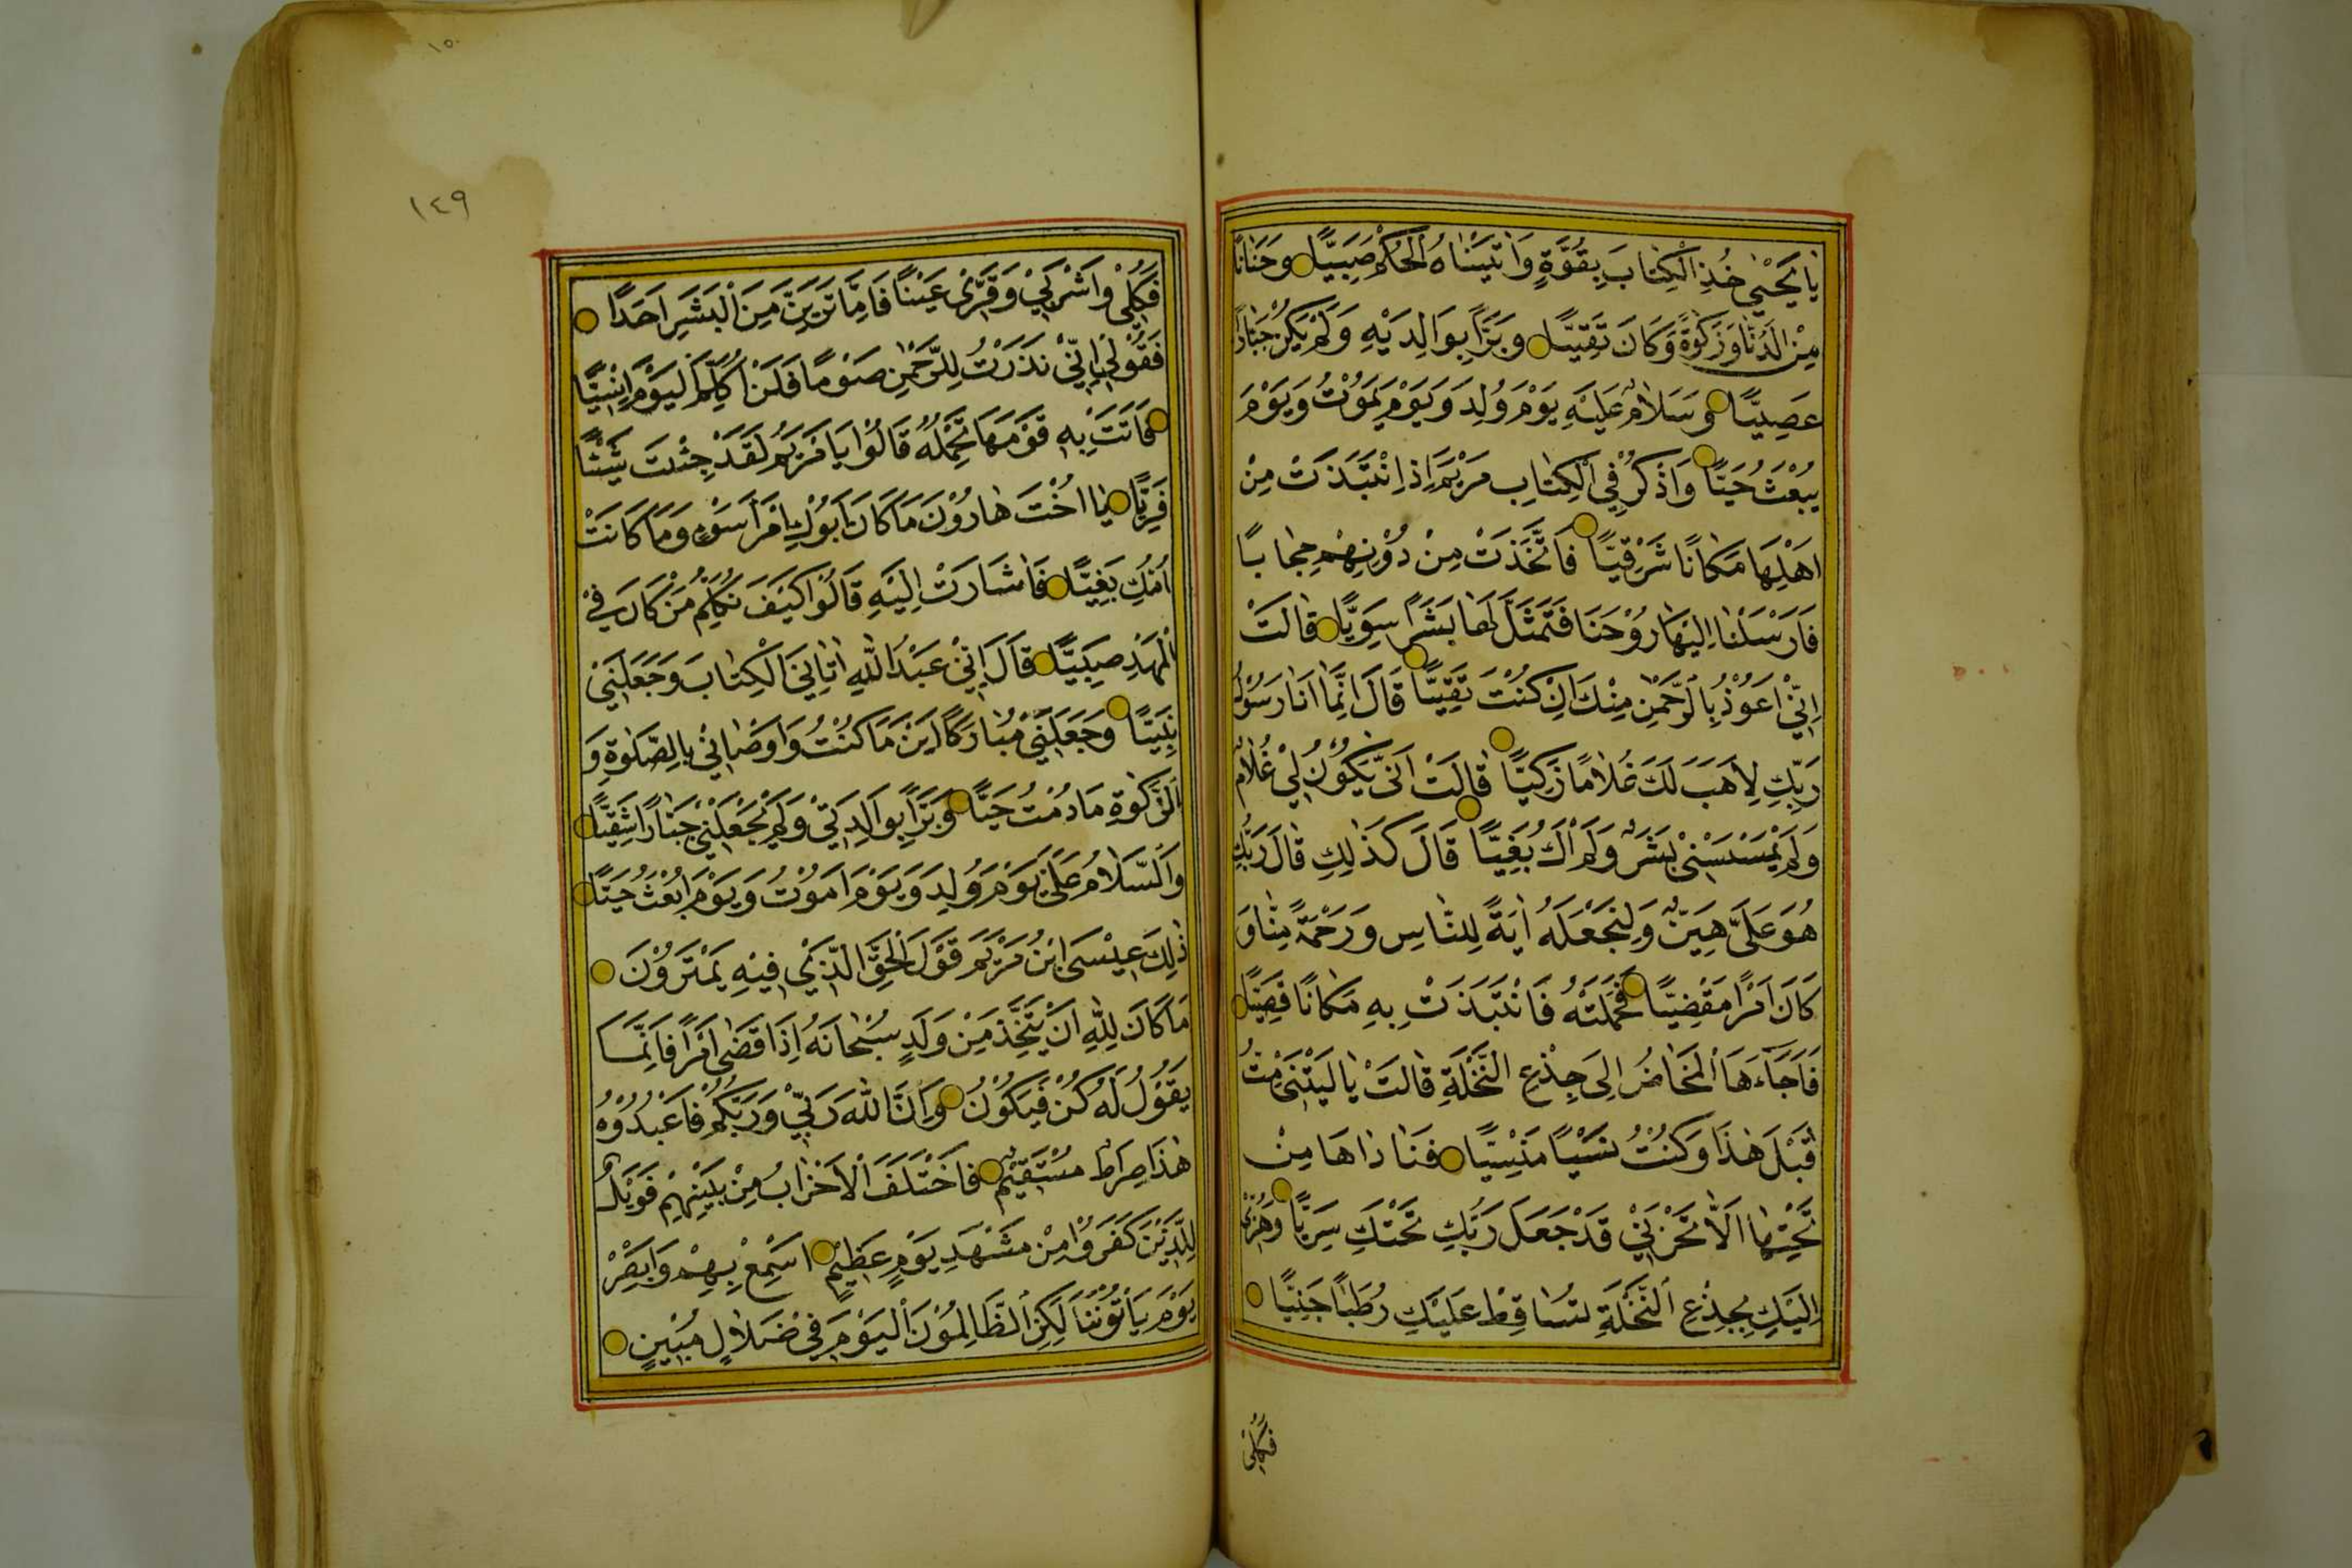 يَا يَحْيٰي خُذِ الْكِتَابَ بِقُوَّةٍ وَاٰتَيْنَاهُ الْحُكْمَ صَبِيًّا وَحَنَانًا
مِنْ لَدُنَّا وَزَكٰوةً وَكَانَ تَقِيًّا وَبَرًّا بِوَالِدَيْهِ وَلَمْ يَكُنْ جَبَّارًا
عَصِيًّا وَسَلَامٌ عَلَيْهِ يَوْمَ وُلِدَ وَيَوْمَ يَمُوْتُ وَيَوْمَ
يُبْعَثُ حَيًّا وَاذْكُرْ فِي الْكِتَابِ مَرْيَمَ اِذِ انْتَبَذَتْ مِنْ
اَهْلِهَا مَكَانًا شَرْقِيًّا فَاتَّخَذَتْ مِنْ دُوْنِهِمْ حِجَابًا
فَاَرْسَلْنَا اِلَيْهَا رُوْحَنَا فَتَمَثَّلَ لَهَا بَشَرًا سَوِيًّا قَالَتْ
اِنِّيْ اَعُوْذُ بِالرَّحْمٰنِ مِنْكَ اِنْ كُنْتَ تَقِيًّا قَالَ اِنَّمَا اَنَا رَسُوْلُ
رَبِّكِ لِاَهَبَ لَكِ غُلَامًا زَكِيًّا قَالَتْ اَنّٰى يَكُوْنُ لِيْ غُلَامٌ
وَلَمْ يَمْسَسْنِيْ بَشَرٌ وَلَمْ اَكُ بَغِيًّا قَالَ كَذٰلِكِ قَالَ رَبُّكِ
هُوَ عَلَيَّ هَيِّنٌ وَلِنَجْعَلَهُ اٰيَةً لِلنَّاسِ وَرَحْمَةً مِنَّا وَ
كَانَ اَمْرًا مَقْضِيًّا فَحَمَلَتْهُ فَانْتَبَذَتْ بِهِ مَكَانًا قَصِيًّا
فَاَجَاءَهَا الْمَخَاضُ اِلٰى جِذْعِ النَّخْلَةِ قَالَتْ يَا لَيْتَنِيْ مِتُّ
قَبْلَ هٰذَا وَكُنْتُ نَسْيًا مَنْسِيًّا فَنَادَاهَا مِنْ
تَحْتِهَا اَلَّا تَحْزَنِيْ قَدْ جَعَلَ رَبُّكِ تَحْتَكِ سَرِيًّا وَهُزِّي
اِلَيْكِ بِجِذْعِ النَّخْلَةِ تُسَاقِطْ عَلَيْكِ رُطَبًا جَنِيًّا
فَكُلِي
١٥٠
١٤٩
فَكُلِيْ وَاشْرَبِيْ وَقَرِّيْ عَيْنًا فَاِمَّا تَرَيِنَّ مِنَ الْبَشَرِ اَحَدًا
فَقُوْلِيْ اِنِّيْ نَذَرْتُ لِلرَّحْمٰنِ صَوْمًا فَلَنْ اُكَلِّمَ الْيَوْمَ اِنْسِيًّا
فَاَتَتْ بِهِ قَوْمَهَا تَحْمِلُهُ قَالُوْا يَا مَرْيَمُ لَقَدْ جِئْتِ شَيْئًا
فَرِيًّا يَا اُخْتَ هَارُوْنَ مَا كَانَ اَبُوْكِ امْرَاَ سَوْءٍ وَمَا كَانَتْ
اُمُّكِ بَغِيًّا فَاَشَارَتْ اِلَيْهِ قَالُوْا كَيْفَ نُكَلِّمُ مَنْ كَانَ فِيْ
الْمَهْدِ صَبِيًّا قَالَ اِنِّيْ عَبْدُ اللّٰهِ اٰتَانِيَ الْكِتَابَ وَجَعَلَنِيْ
نَبِيًّا وَجَعَلَنِيْ مُبَارَكًا اَيْنَ مَا كُنْتُ وَاَوْصَانِيْ بِالصَّلٰوةِ وَ
الزَّكٰوةِ مَا دُمْتُ حَيًّا وَبَرًّا بِوَالِدَتِيْ وَلَمْ يَجْعَلْنِيْ جَبَّارًا شَقِيًّا
وَالسَّلَامُ عَلَيَّ يَوْمَ وُلِدَ وَيَوْمَ اَمُوْتُ وَيَوْمَ اُبْعَثُ حَيًّا
ذٰلِكَ عِيْسَى ابْنُ مَرْيَمَ قَوْلَ الْحَقِّ الَّذِيْ فِيْهِ يَمْتَرُوْنَ
مَا كَانَ لِلّٰهِ اَنْ يَتَّخِذَ مِنْ وَلَدٍ سُبْحَانَهُ اِذَا قَضٰى اَمْرًا فَاِنَّمَا
يَقُوْلُ لَهُ كُنْ فَيَكُوْنُ وَاِنَّ اللّٰهَ رَبِّيْ وَرَبُّكُمْ فَاعْبُدُوْهُ
هٰذَا صِرَاطٌ مُسْتَقِيْمٌ فَاخْتَلَفَ الْاَحْزَابُ مِنْ بَيْنِهِمْ فَوَيْلٌ
لِلَّذِيْنَ كَفَرُوْا مِنْ مَشْهَدِ يَوْمٍ عَظِيْمٍ اَسْمِعْ بِهِمْ وَاَبْصِرْ
يَوْمَ يَاْتُوْنَنَا لٰكِنِ الظَّالِمُوْنَ الْيَوْمَ فِيْ ضَلَالٍ مُبِيْنٍ